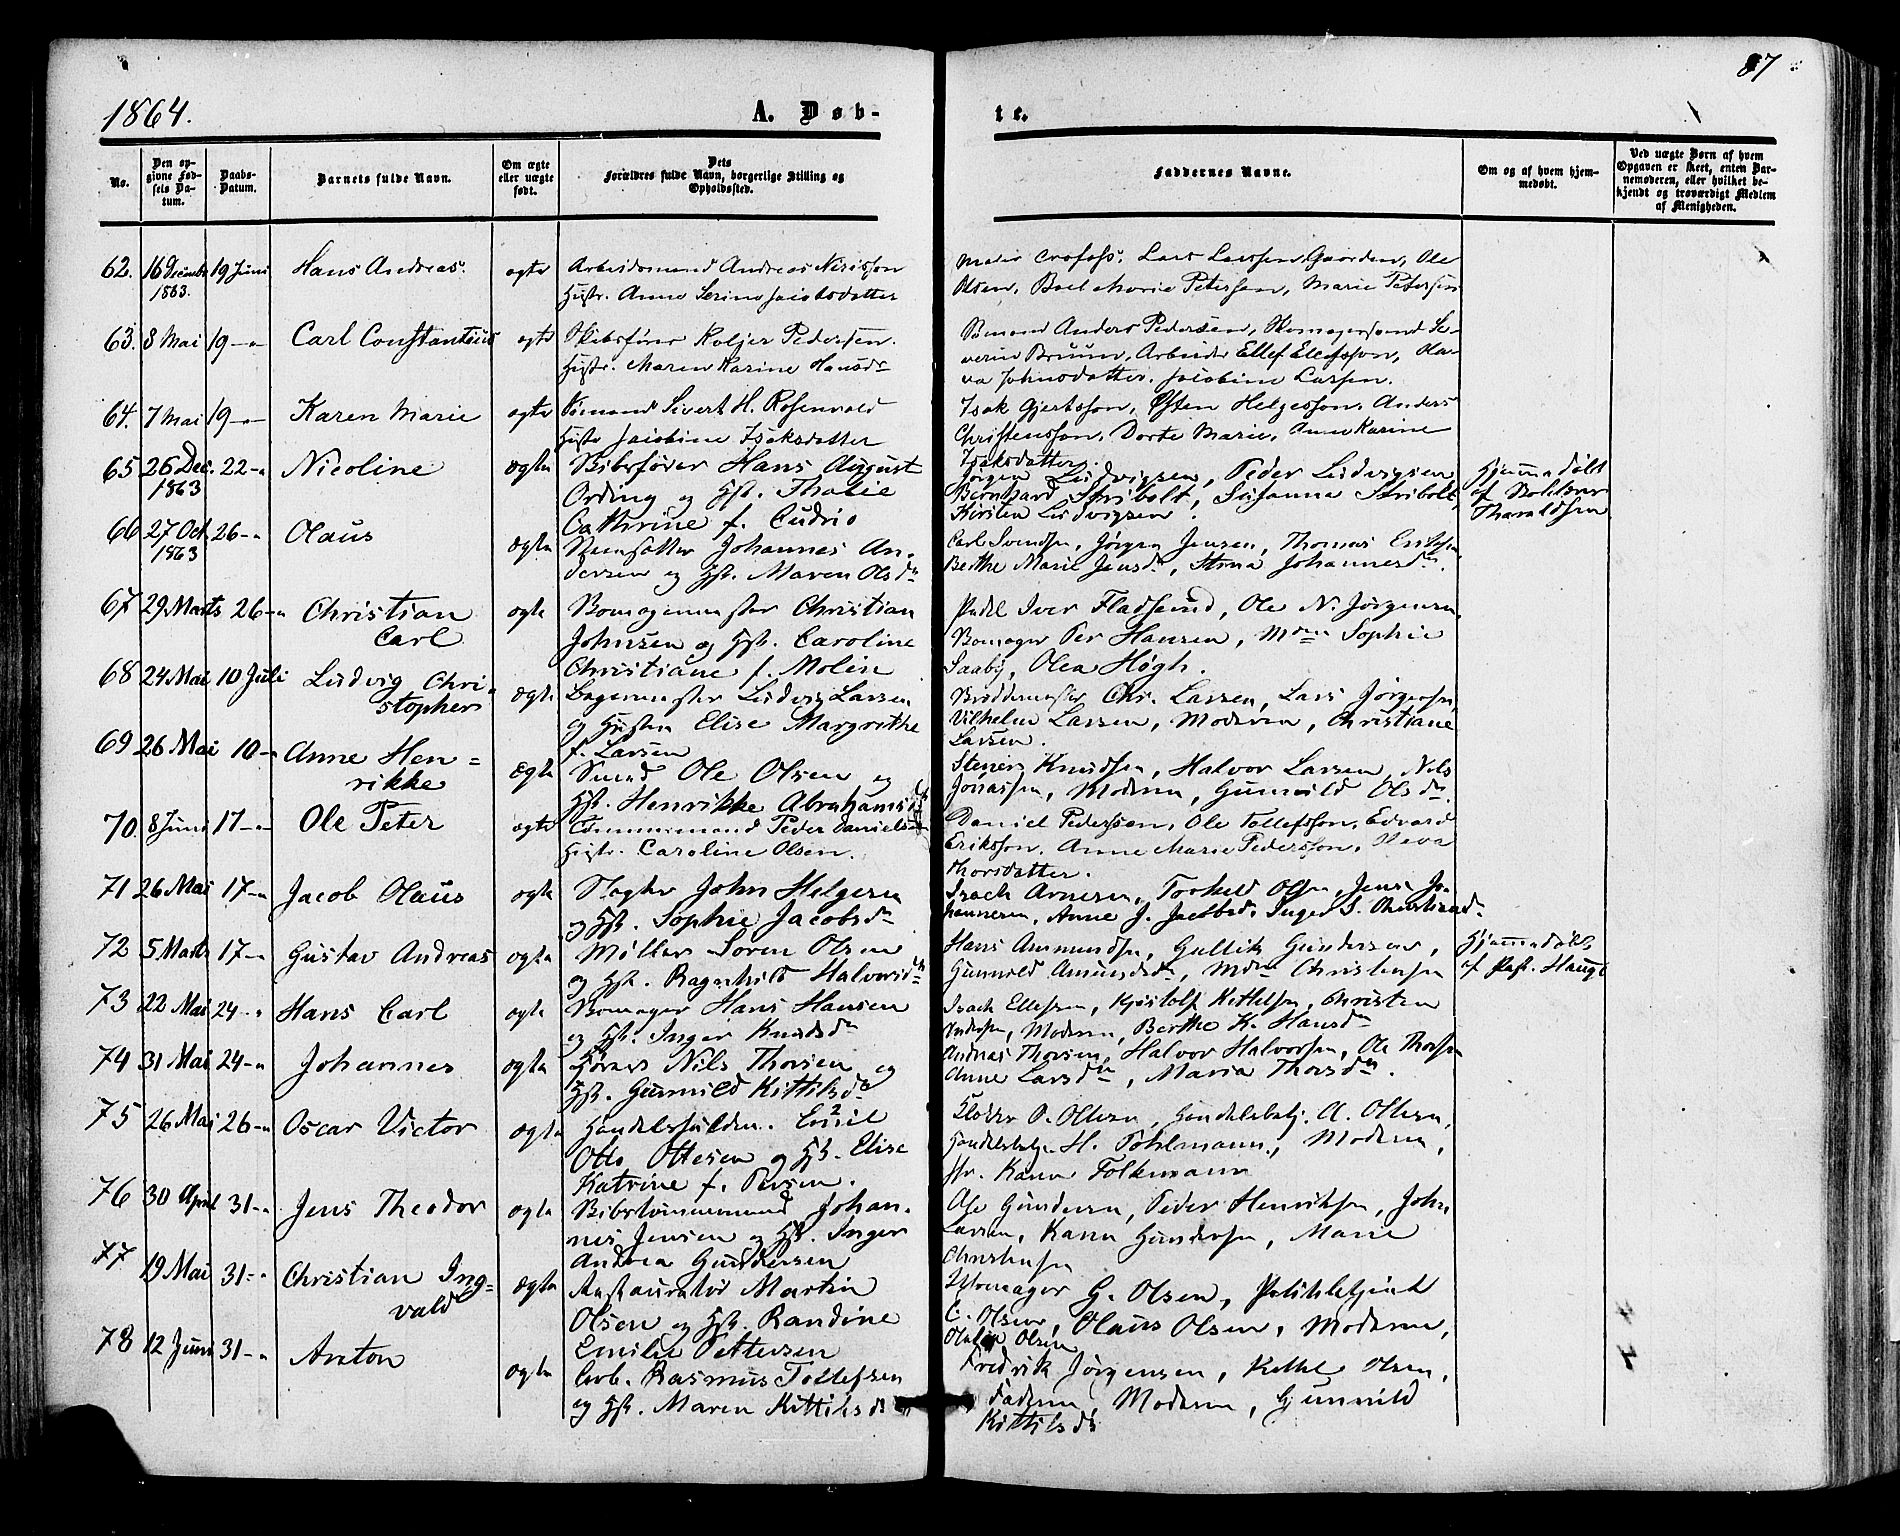 87
1864.
A. Døb-
te.
No.
Den op-
givne Fød-
sels Da-
tum.
Daabs-
Datum.
Barnets fulde Navn.
Om ægte
eller uægte
født.
Dets
Forældres fulde Navn, borgerlige Stilling og
Opholdssted.
Faddernes Navne.
Om og af hvem hjem-
medøbt.
Ved uægte Børn af hvem
Opgaven er skeet, enten Bar-
nemoderen, eller hvilket be-
kjendt og troværdigt Medlem
af Menigheden.
62. 16 Decembr 19 Juni Hans Andreas. ægte Arbeidsmand Andreas
1863. Hustr. Anne Serine Jacobsdatter
Lars Larssen Gaarden, Ole
Olsen, Boel Marie Petersen, Marie Petersen
63. 8 Mai 19 -"- Carl Constantius ægte Skibsfører Pedersen.
Hustr. Maren Karine Hansdr
Sømand Anders Pedersen, Skomagersvend Se-
verin Bruun, Arbeider Ellef Elefsson, Ola-
va Johnsdatter. Jacobine Larsen.
64. 7 Mai 19 -"- Karen Marie ægte Sømand Sivert H. Rosenvold
Hustr Jacobine Isaksdatter
Isak Gjertsson, Østen Helgesson, Anders
Christensson, Dorte Marie, Anne Karine
Isaksdatter.
65 26 Dec. 22 -" Nicoline ægte Bibsfører Hans August
1863 Ording og Hst. Thalie
Cathrine f. Cudrio
Jørgen Ludvigsen, Peder Ludvigsen
Bernhard Stribolt, Susanna Stribolt
Kirsten Ludvigsen.
Hjemmedøbt
af
Tharaldsen
66 27 Oct. 26 -" Olaus ægte Johannes An-
1863 dersen og Hst. Maren Olsdr
Carl Svendsen, Jørgen Jensen, Thomas
Berthe Marie Jensdr, Stina Johannesdr.
67 29. Marts 26 -" Christian ægte Christian
Carl Johnsen og Hst. Caroline
Christiane f. Molin
Iver Fladsund, Ole N. Jørgensen,
Per Hansen, Mdme Sophie
Saaby, Olea Høgh.
68 24. Mai 10 Juli Ludvig Chri- ægte Bagermester Ludvig Larsen
stopher og Hustru Elise Margrethe
f. Larsen
Chr. Larsen, Lars Jørgensen,
Vilhelm Larsen, Moderen, Christiane
Larsen.
69 26 Mai 10 -" Anne Hen= Ægte Ole Olsen og
rikke Hst. Henrikke Abrahamsdr
Steners Knudsen, Halvor Larsen, Nils
Jonassen, Moderen, Gunild Olsdr.
70. 8 Juni 17 -"- Ole Peter ægte Tømmermand Peder Danielsen
Hustr. Caroline Olsen.
Daniel Pederssen, Ole Tollefsson, Edvard
Eriksson, Anne Marie Pedersson,
Thorsdatter.
71 26 Mai 17 -" Jacob Olaus ægte John Helgesen
og Hst. Sophie Jacobsdr
Isach Arnesen, Torkild Olsen, Jens Jo-
hannesen, Anne J. Jacobsd. Inger S. Christiansdr
72 5 Marts 17 -" Gustav Andreas ægte Møller Søren Olsen
og Hst. Ragnhild Halvorsdr
Hans Ammundsen, Gullik Gundersen,
Gunnild Amundsdr, Mdme Christensen
Hjemmedøbt
af Past. Hauge
73 22 Mai 24 -" Hans Carl ægte Hans Hansen
og Hst. Inger Knudsdr
Isach Ellefsen, Kjøstolf Kittelsen, Christen
Andersen, Moderen, Berthe K. Hansdr
74 31 Mai 24 -" Johannes ægte Nils Thorsen og
Hst. Gunnild Kittilsdr
Andreas Thorsen, Halvor Halvorsen, Ole Thorsen
Anne Larsdr, Maria Thorsdr.
75 26 Mai 26 -" Oscar Victor ægte Emil
Otto Ottesen og Hst. Elise
Katrine f. Persen.
O. Olsen, Handelsbetj. A. Olsen,
Handelsbetj. H. Pohlmann, Moderen,
Karen Folkmann
76 30 April 31 -" Jens Theodor ægte Bibstømmermand Johan-
nes Jensen og Hst. Inger
Andrea Gundersen
Ole Gundersen, Peder Henriksen, John
Larsen, Karen Gundersen, Marie
Christensen
77 19 Mai 31 -" Christian Ing= ægte Restauratør Martin
vald Olsen og Hst. Randine
Emilie Pettersen
Skomager G. Olsen, Politibetjent
C. Olsen, Olaus Olsen, Moderen,
Olsen
78 12 Juni 31 -" Anton ægte Arb. Rasmus Tollefsen
og Hst. Maren Kittilsdr
Fredrik Jørgensen, Kettel Olsen,
Faderen, Moderen, Gunnild
Kittilsdr